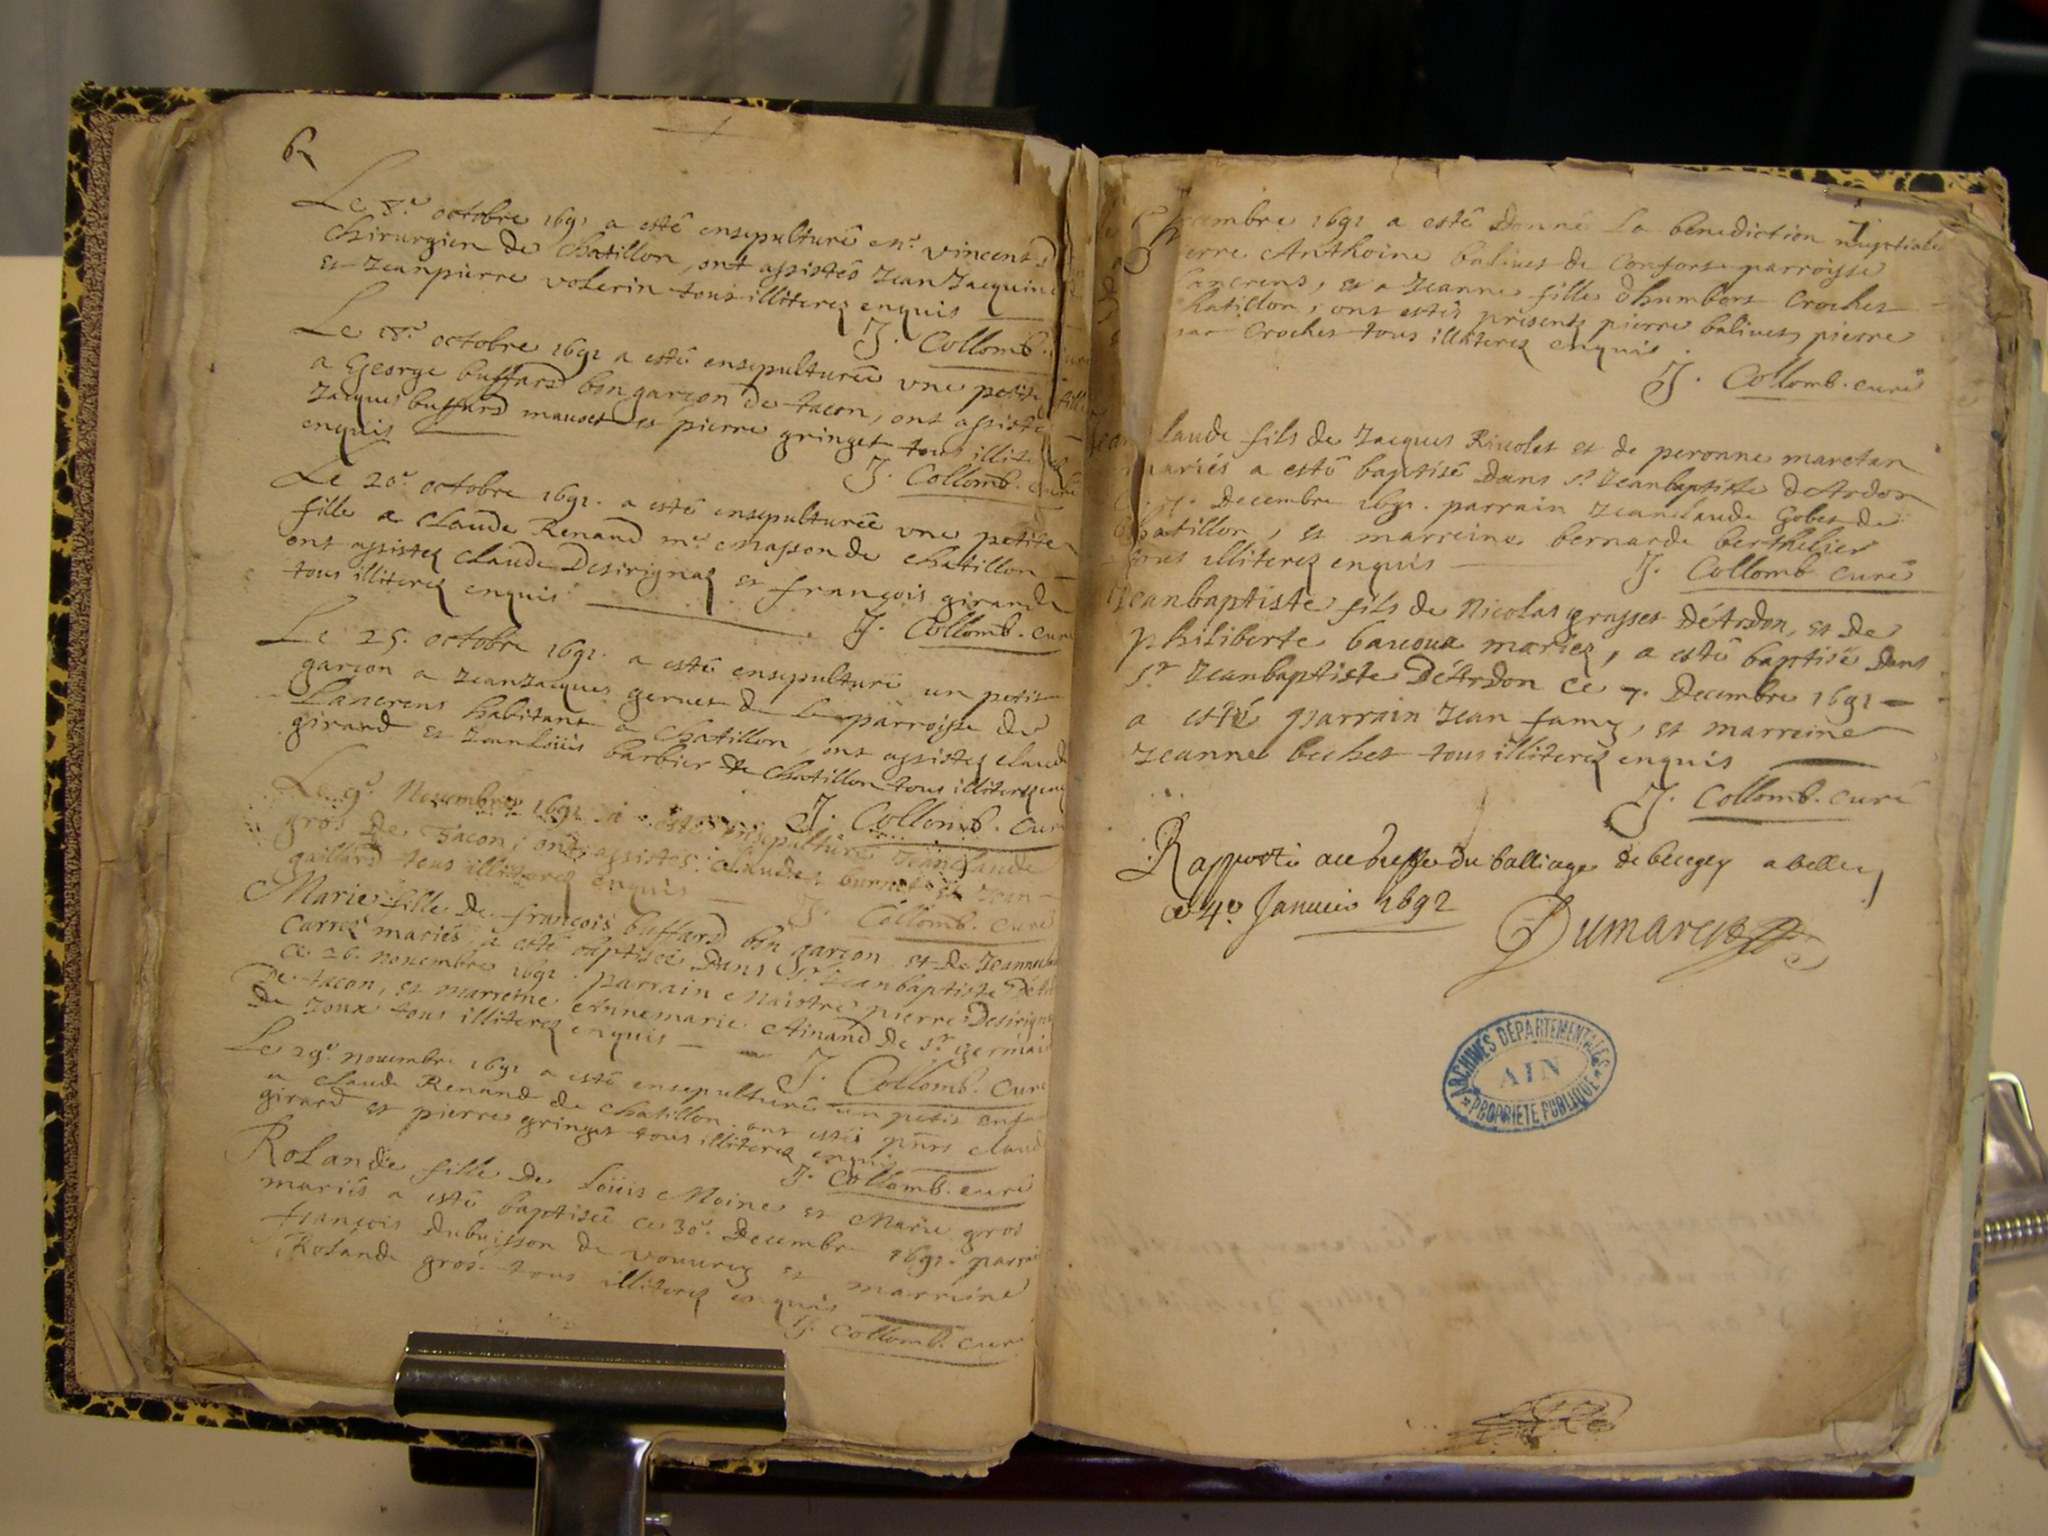 6
Le 8.e octobre 1691 a esté ensepulturé Mr. vincent
chirurgien de chatillon, ont assistés Jean Jacquin
et Jeanpierre volerin tous illiterez enquis
J. Collomb. curé
Le 18.e octobre 1691 a esté ensepulturée une petite fille
a George buffard bon garçon de tacon, ont assisté
Jacques buffard mauset et pierre gringet tous illiterez
enquis
J. Collomb. curé
Le 20.e octobre 1691. a esté ensepulturée une petite
fille a Claude Renand me. masson de chatillon
ont assistez Claude Desirignaz et françois girard
tous illiterez enquis
J. Collomb. curé
Le 25. octobre 1691. a esté ensepulturé un petit
garçon a Jeanjacques geruet de la parroisse de
Lancrens habitant a Chatillon, ont assistez claude
girard et Jeanloüis barbier de chatillon tous illiterez enq
J. Collomb. curé
Le 9.e Novembre 1691 a esté ensepulturé Jeanclaude
gros de Tacon; ont assistés Claude burnet et Jean
gaillard tous illiterez enquis
J. Collomb. curé
Marie fille de françois buffard bon garçon et de Jeanne
Carré mariés, a esté baptisée Dans St Jeanbaptiste
ce 26. novembre 1691. parrain Maistre pierre Desirignaz
De tacon, et marreine Annemarie Ainard De st germain
de Joux tous illiterez enquis
J. Collomb. curé
Le 29.e novembre 1691 a esté ensepulturé un petit enfa
a claude Renand de chatillon. ont estés pnts claude
girard et pierre gringet tous illiterez enquis
J. Collomb. curé
Rolande fille de Loüis Moine et Marie gros
mariés a esté baptisée ce 30.e Decembre 1691. parrai
françois dubuisson de vouurey et marreine
Rolande gros. tous illiterez enquis
J. Collomb. cur
7
cembre 1691 a esté Donné la bénédiction nuptiale
ierre Anthoine baliuet de Confort parroisse
lancrens, et a Jeanne fille d'humbert Crochet
hatillon, ont estés presents pierre baliuet, pierre
Crochet tous illiterez enquis
J. Collomb. curé
Jeanclaude fils de Jacques Riuolet et de peronne maretan
mariés a esté baptisé Dans st Jeanbaptiste d'Ardon
ce 7. Decembre 1691. parrain Jeanclaude Gobet de
Chatillon, et marreine bernarde berthelier
tous illiterez enquis
J. Collomb curé
Jeanbaptiste fils de Nicolas grasset D'Ardon, et De
philiberte baucoux mariez, a esté baptisé Dans
st Jeanbaptiste D'Ardon ce 7. Decembre 1691
a esté parrain Jean famy, et marreine
Jeanne bechet tous illiterez enquis
J. Collomb. curé
Rapporté au greffe du balliage de beugey a belley
ce 4e Januier 1692
Dumarest
ARCHIVES DÉPARTEMENTALES
AIN
PROPRIÉTÉ PUBLIQUE